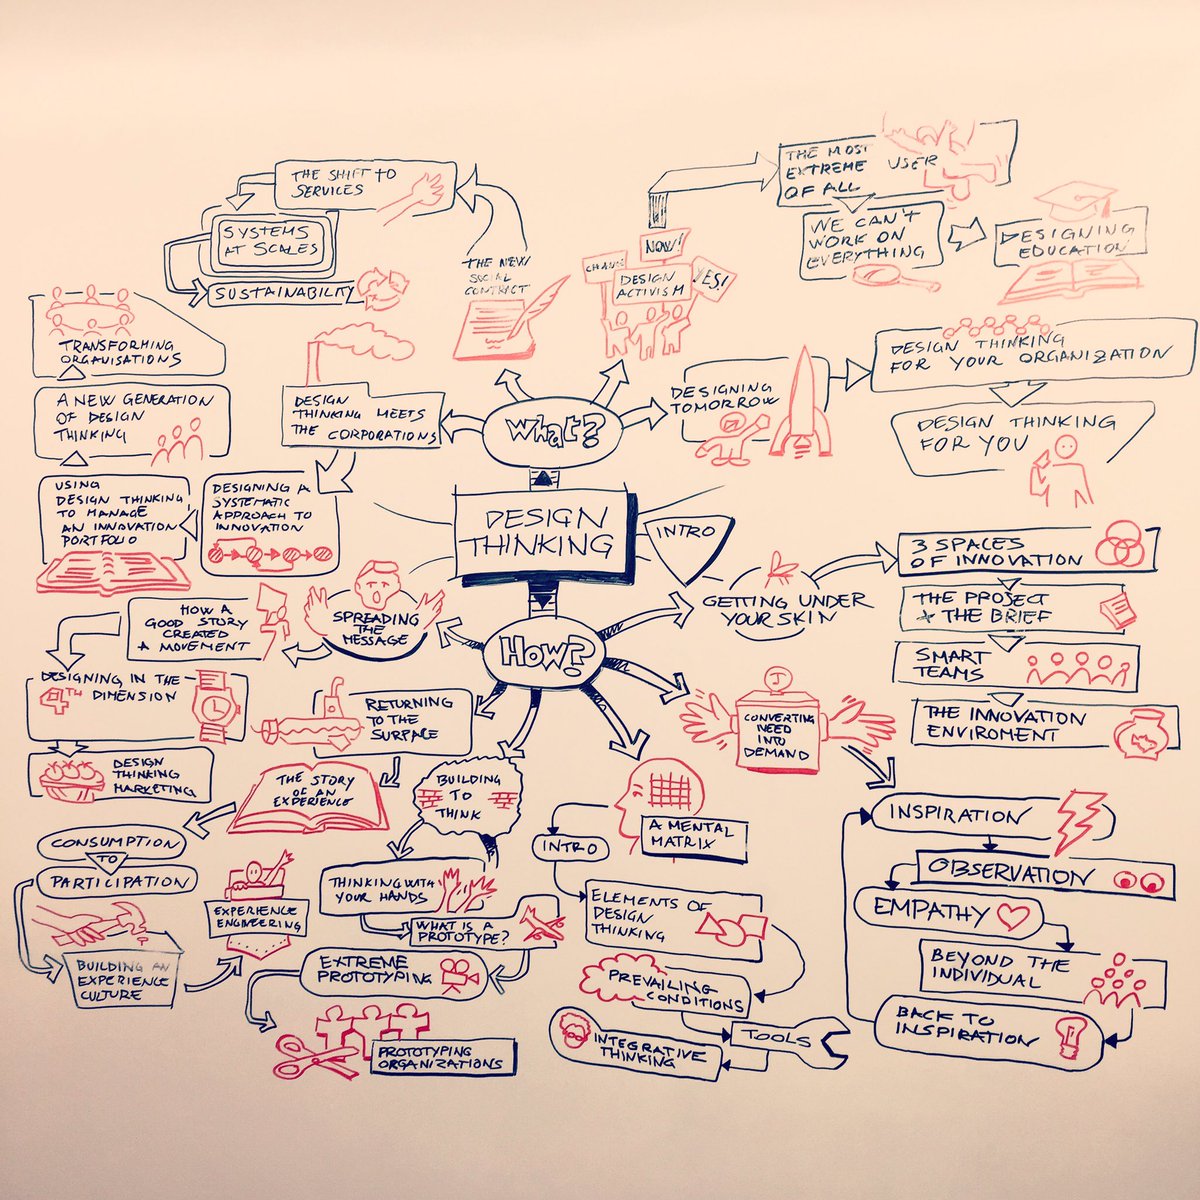 DESIGN
THINKING
INTRO
What?
THE NEW
SOCIAL
CONTRACT
THE SHIFT TO
SERVICES
SYSTEMS
AT SCALES
SUSTAINABILITY
CHANGE
NOW!
YES!
DESIGN
ACTIVISM
THE MOST
EXTREME USER
OF ALL
WE CAN'T
WORK ON
EVERYTHING
DESIGNING
EDUCATION
DESIGNING
TOMORROW
DESIGN THINKING
FOR YOUR ORGANIZATION
DESIGN THINKING
FOR YOU
DESIGN
THINKING MEETS
THE CORPORATIONS
DESIGNING A
SYSTEMATIC
APPROACH TO
INNOVATION
USING
DESIGN THINKING
TO MANAGE
AN INNOVATION
PORTFOLIO
A NEW GENERATION
OF DESIGN
THINKING
TRANSFORMING
ORGANISATIONS
How?
GETTING UNDER
YOUR SKIN
3 SPACES
OF INNOVATION
THE PROJECT
+ THE BRIEF
SMART
TEAMS
THE INNOVATION
ENVIROMENT
CONVERTING
NEED
INTO
DEMAND
INSPIRATION
OBSERVATION
EMPATHY
BEYOND THE
INDIVIDUAL
BACK TO
INSPIRATION
A MENTAL
MATRIX
INTRO
ELEMENTS OF
DESIGN
THINKING
PREVAILING
CONDITIONS
TOOLS
INTEGRATIVE
THINKING
BUILDING
TO
THINK
THINKING WITH
YOUR HANDS
WHAT IS A
PROTOTYPE?
EXTREME
PROTOTYPING
PROTOTYPING
ORGANIZATIONS
RETURNING
TO THE
SURFACE
THE STORY
OF AN
EXPERIENCE
CONSUMPTION
TO
PARTICIPATION
BUILDING AN
EXPERIENCE
CULTURE
EXPERIENCE
ENGINEERING
SPREADING
THE
MESSAGE
HOW A
GOOD STORY
CREATED
A MOVEMENT
DESIGNING IN THE
4TH DIMENSION
DESIGN
THINKING
MARKETING